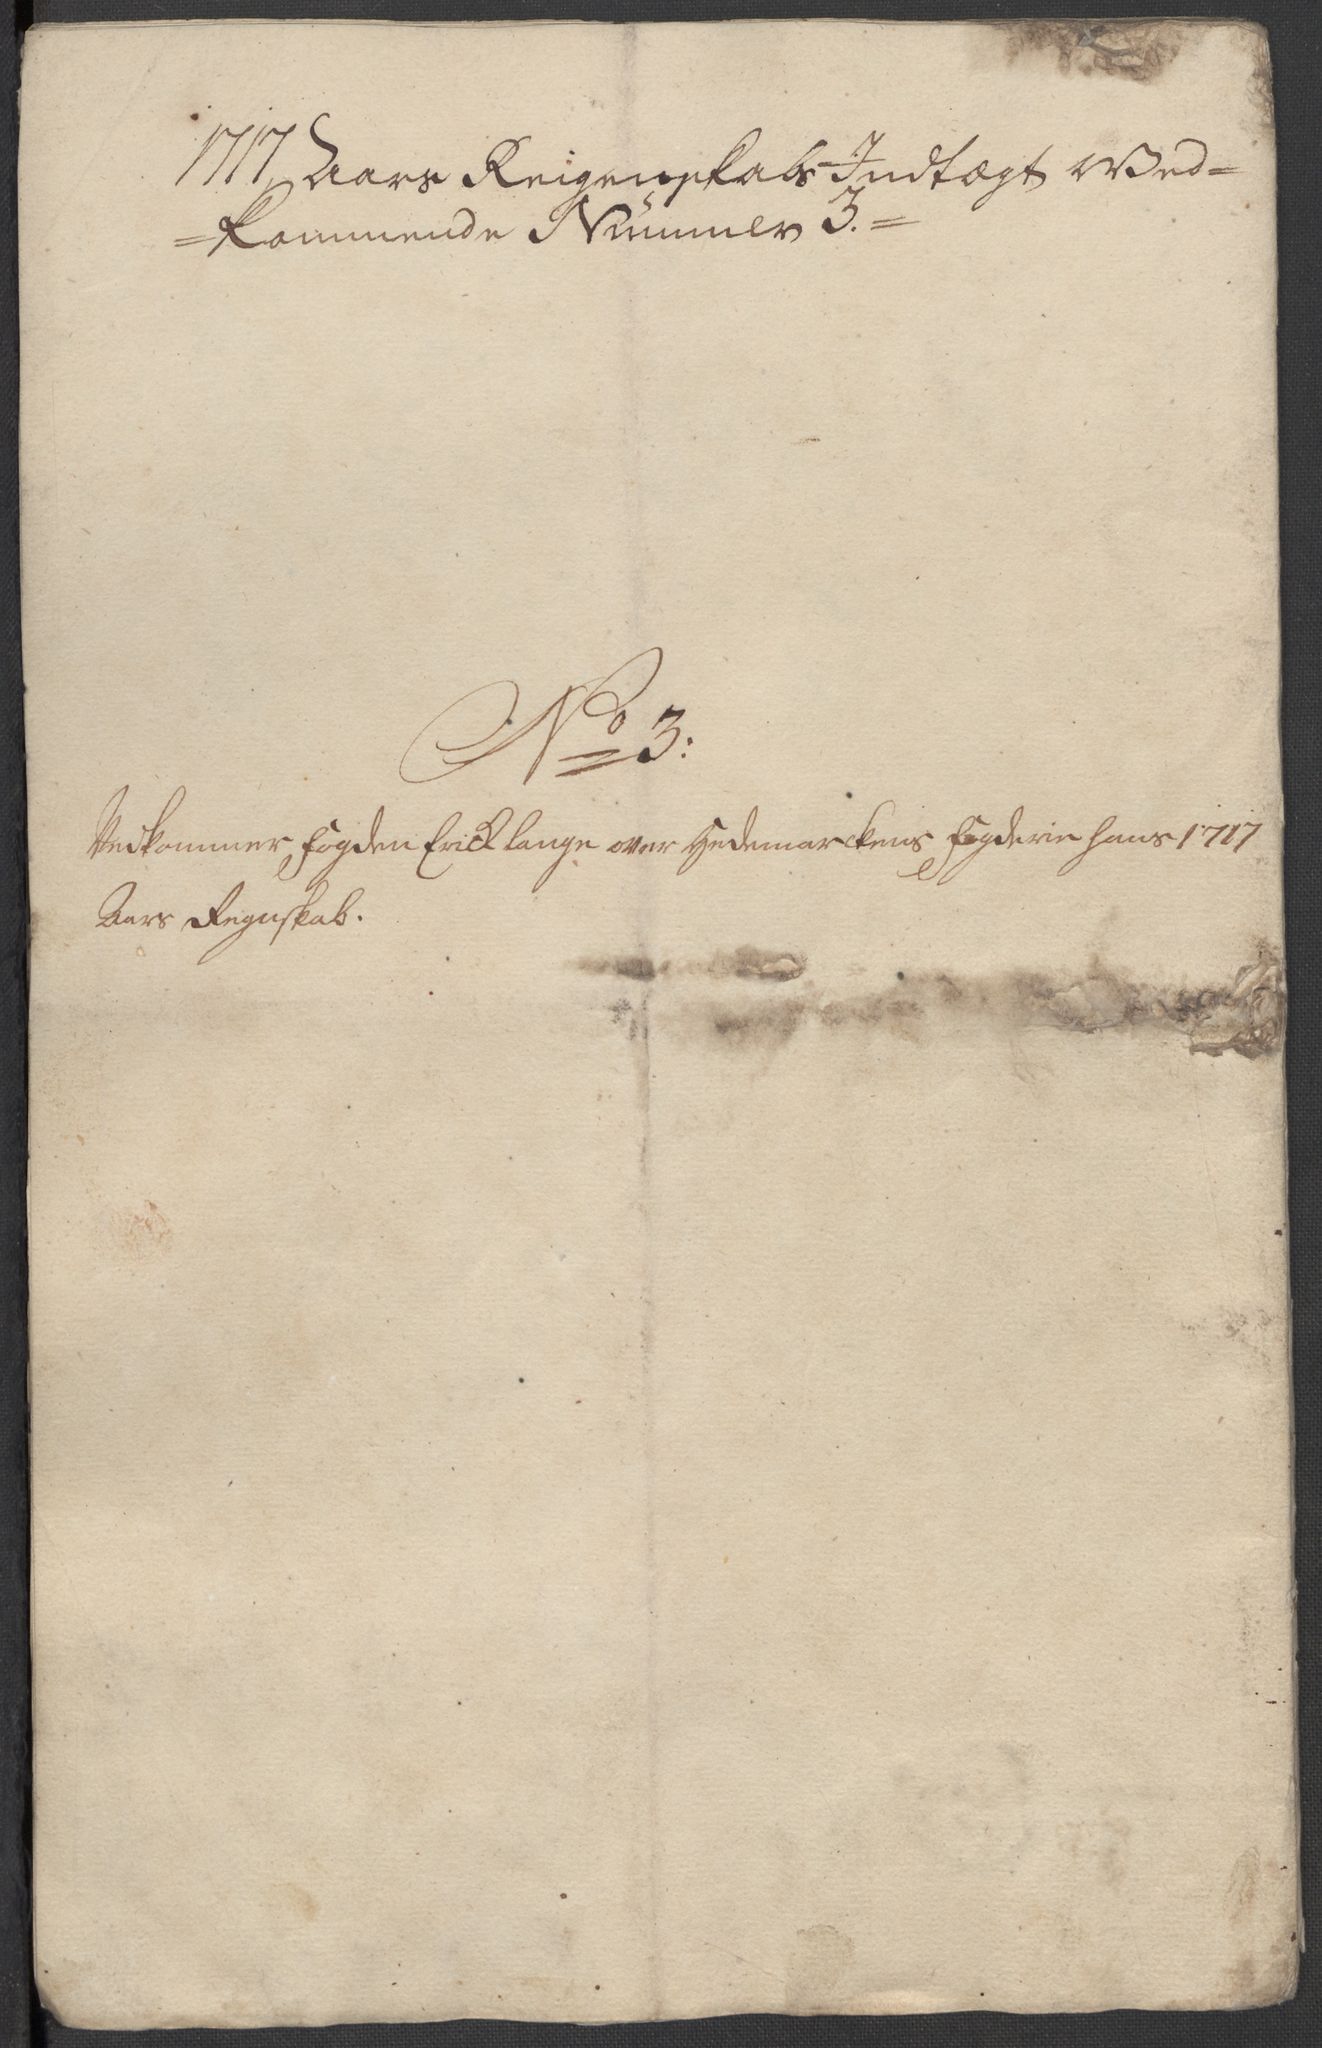 1717 Aars Reigenskabs Indtægt Ved=
=kommende Nummer 3.=
No 3:
Vedkommer fogden Erick lange over Hedemarckens fogderie hans 1717
Aars Regnskab.